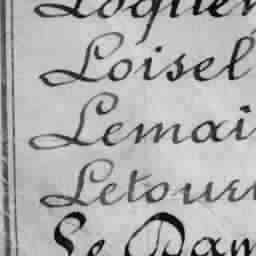 Loquen
Loisel
Lemai
Letour
Le Dam